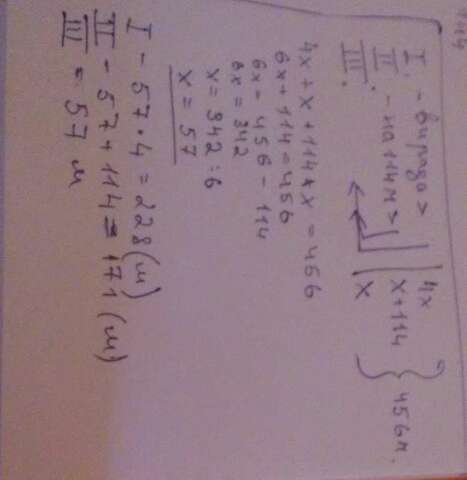 I. - вчитрдо > 4x
II. - на 114м > x+114 } 456м.
III. x
4x + x + 114 + x = 456
6x + 114 = 456
6x = 456 - 114
6x = 342
x = 342 : 6
x = 57
I - 57 · 4 = 228 (м)
II - 57 + 114 = 171 (м)
III = 57 м